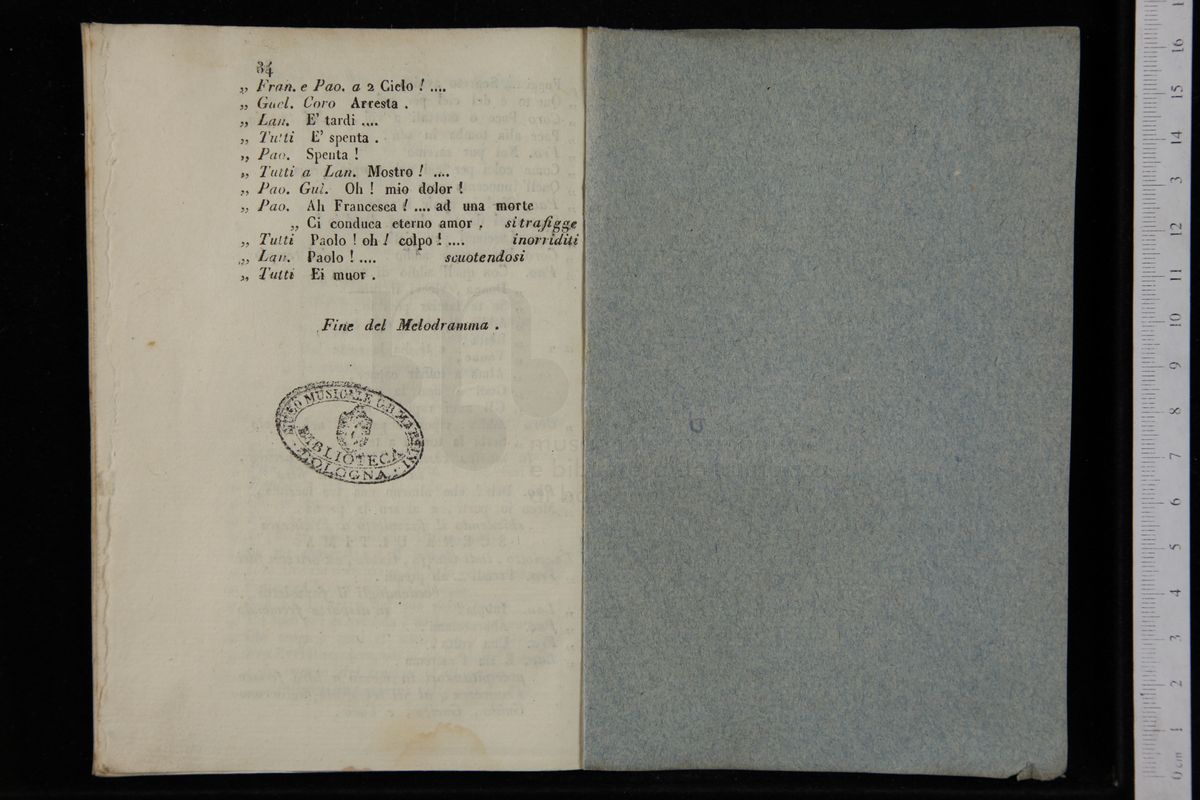 34
„ Fran. e Pao. a 2 Cielo ! ....
„ Guel. Coro Arresta .
„ Lan. E' tardi ....
„ Tutti E' spenta .
„ Pao. Spenta !
„ Tutti a Lan. Mostro ! ....
„ Pao. Gul. Oh ! mio dolor !
„ Pao. Ah Francesca ! .... ad una morte
„ Ci conduca eterno amor . si trafigge
„ Tutti Paolo ! oh ! colpo ! .... inorriditi
„ Lan. Paolo ! .... scuotendosi
„ Tutti Ei muor .
Fine del Melodramma .
MUSICALE G.B. MARTINI
BIBLIOTECA
BOLOGNA
0 cm 1 2 3 4 5 6 7 8 9 10 11 12 13 14 15 16